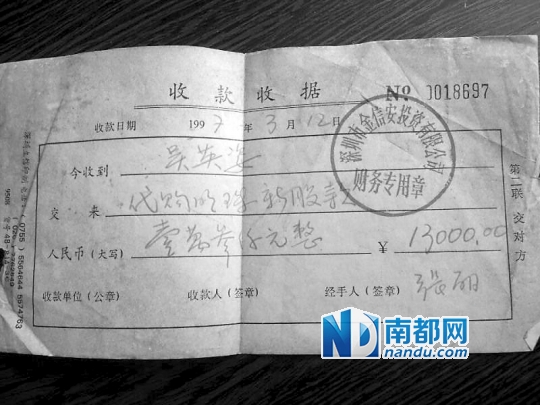 收款收据 Nº 0018697
收款日期 1997年3月12日
今收到 吴英姿
交来 代购明珠新股款
人民币(大写) 壹萬叁仟元整 ¥ 13000.00
收款单位(公章) 收款人(签章) 经手人(签章) 张丽
第二联 交对方
深圳市金信安投资有限公司
财务专用章
(0755) 5564644 5574763
南都网
nandu.com